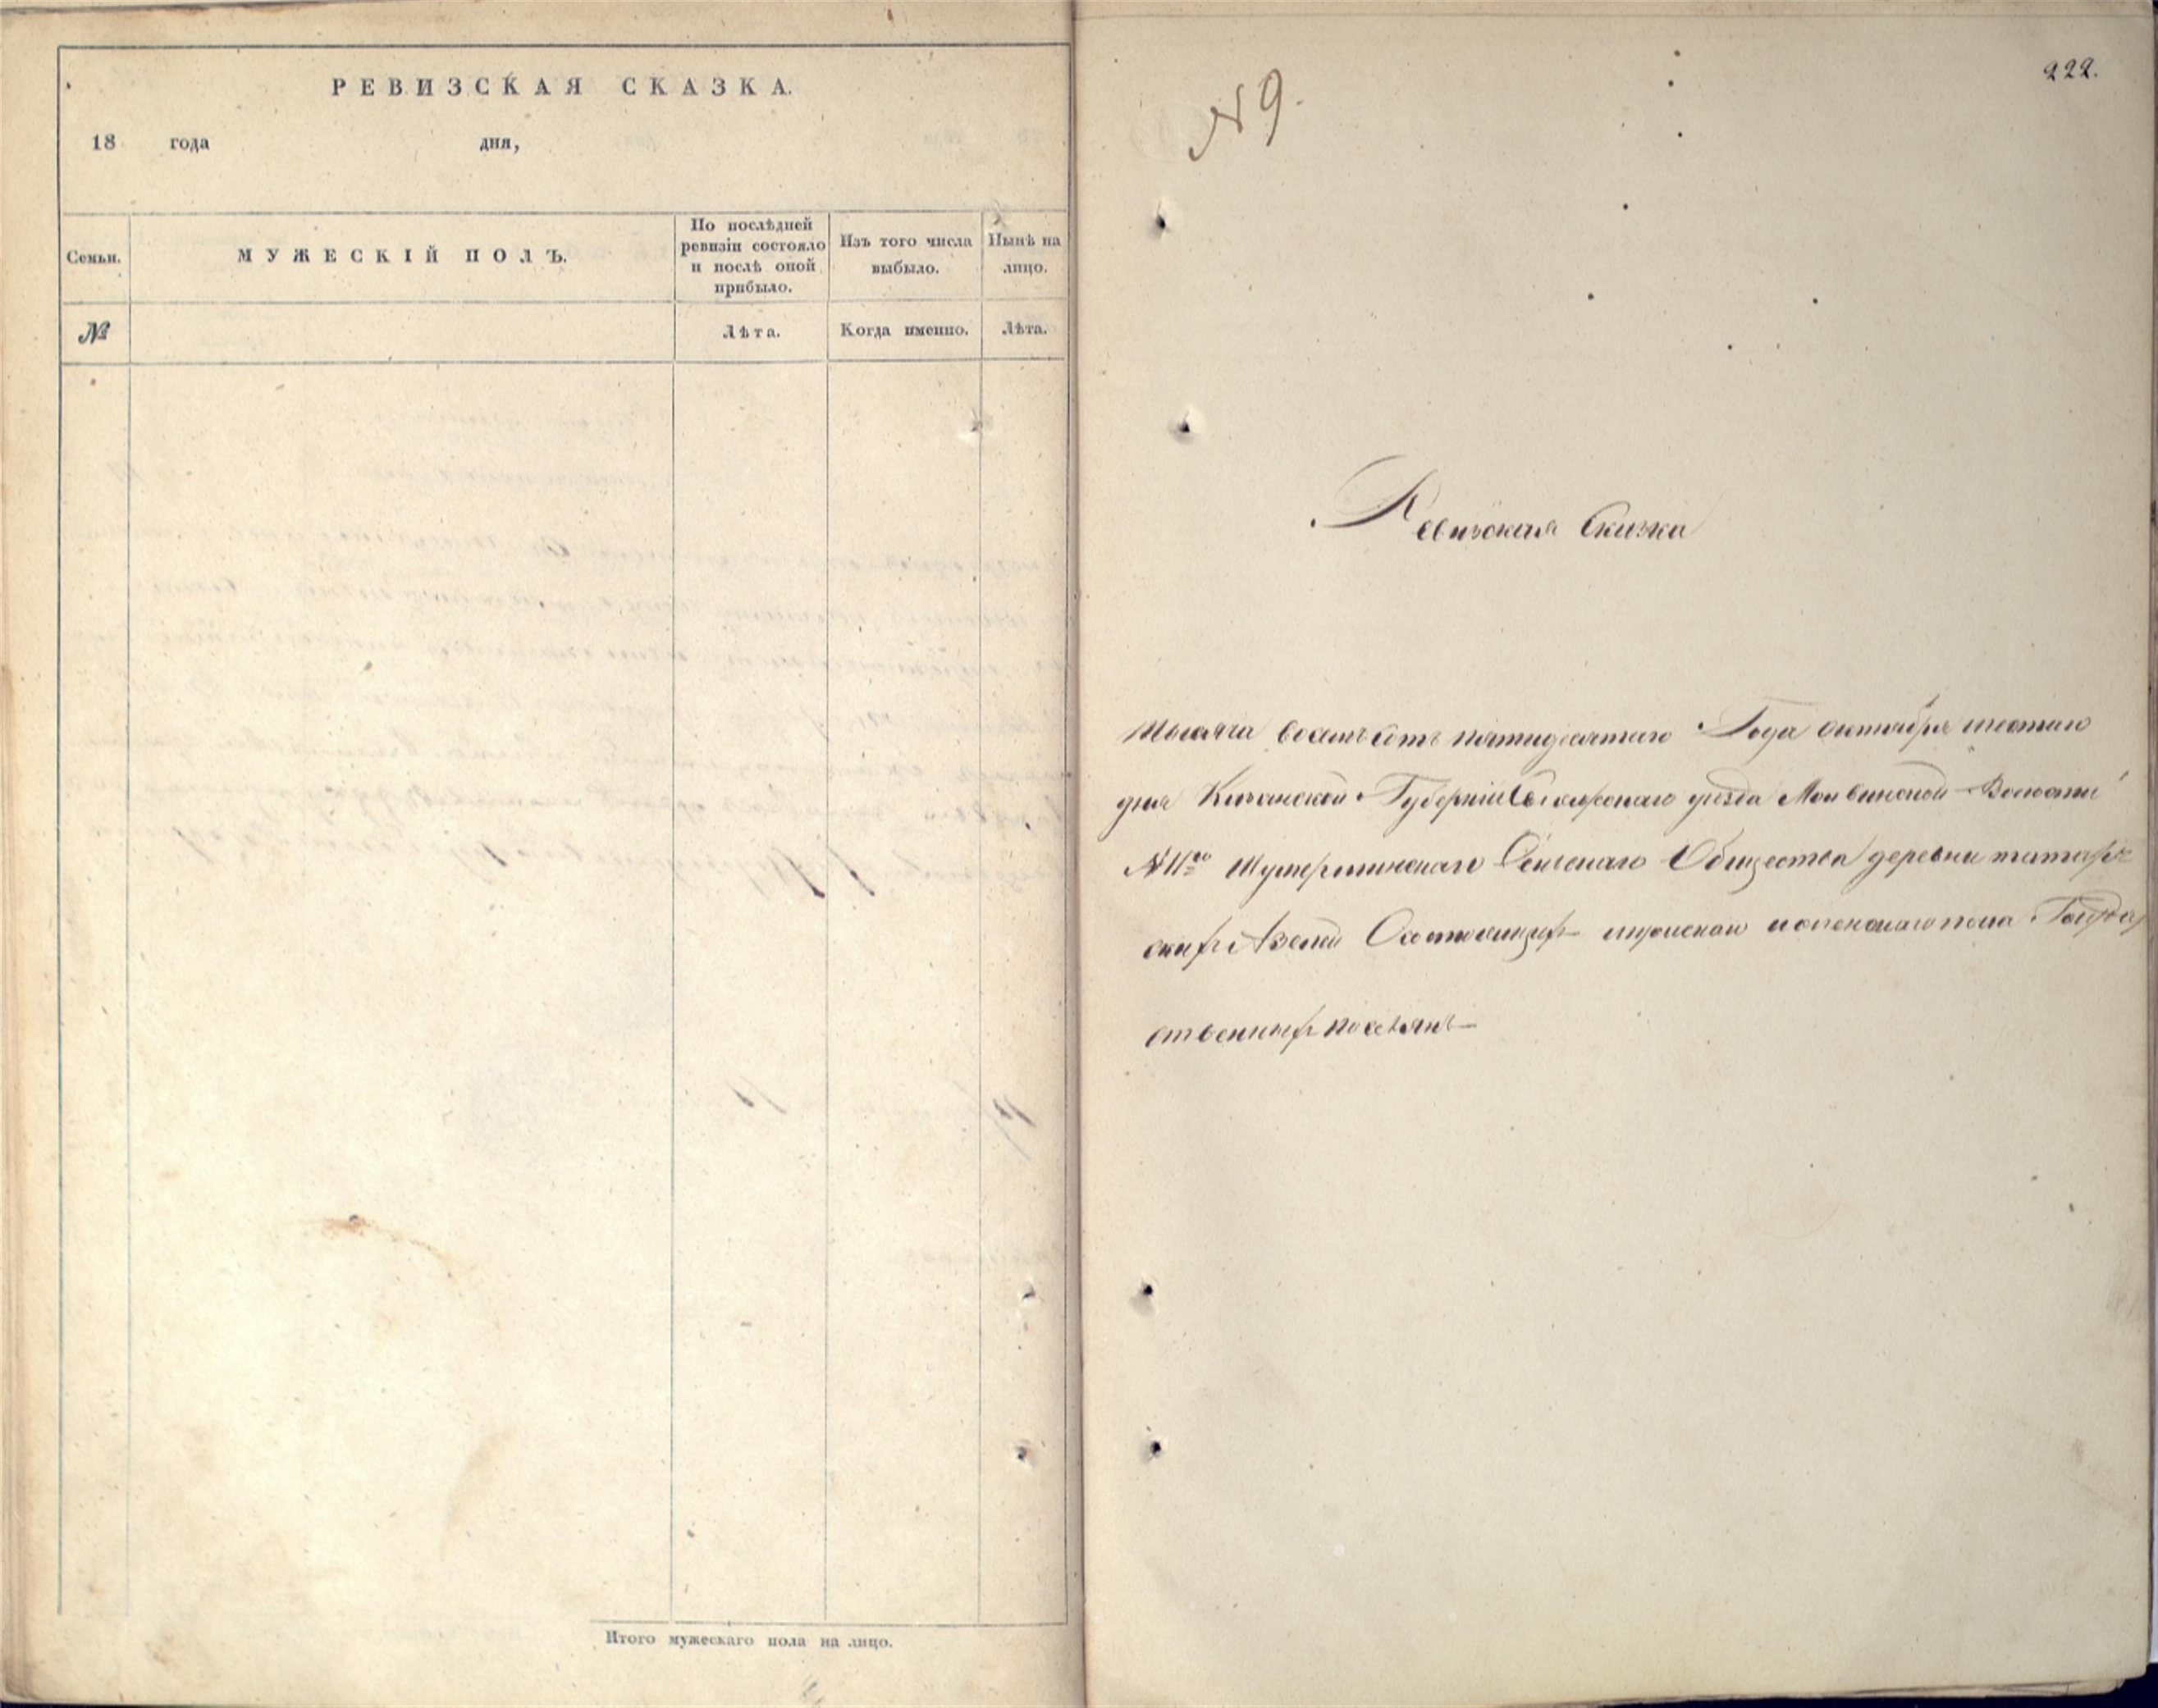 РЕВИЗСКАЯ СКАЗКА.
18 года дня,
Семьи.
МУЖЕСКІЙ ПОЛЪ.
По послѣдней
ревизіи состояло
и послѣ оной
прибыло.
Изъ того числа
выбыло.
Нынѣ на
лицо.
№
Лѣта.
Когда именно.
Лѣта.
Итого мужескаго пола на лицо.
222.
№ 9.
Ревизская Сказка
Тысяча восемь сотъ пятидесятаго Года октября шестаго
дня Казанской Губерніи уѣзда Волости
№ 11го Сельскаго Общества деревни татарс
кихъ Азелей Состоящихъ мужескаго и женскаго пола Государ
ственныхъ поселянъ